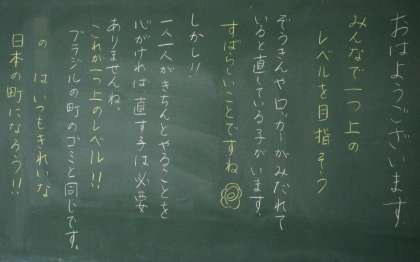 おはようございます
みんなで一つ上の
レベルを目指そう
ぞうきんやロッカーがみだれて
いると直している子がいます。
すばらしいことですね
しかし!!
一人一人がきちんとやることを
心がければ直す子は必要
ありませんね。
これが一つ上のレベル!!
ブラジルの町のゴミと同じです。
の はいつもきれいな
日本の町になろう!!